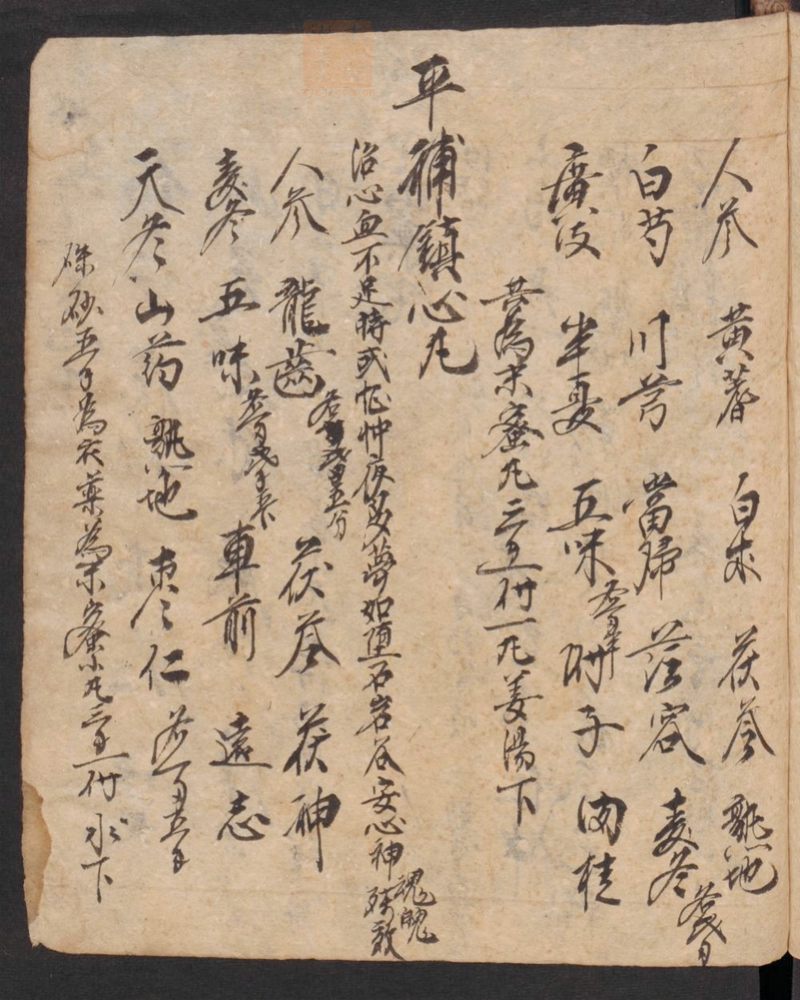 人参 黄蓍 白朮 茯苓 熟地
白芍 川芎 當歸 苁容 麦冬
廣皮 半夏 五味 附子 肉桂
共為末蜜丸三五付一丸姜湯下
平補鎮心丸
治心血不足時或怔忡夜多夢如墮石岩谷安心神魂魄
人参 龍齒 茯苓 茯神
麦冬 五味 車前 遠志
天冬 山药 熟地 枣仁
硃砂五 為衣藥為末蜜小丸三五付 水下